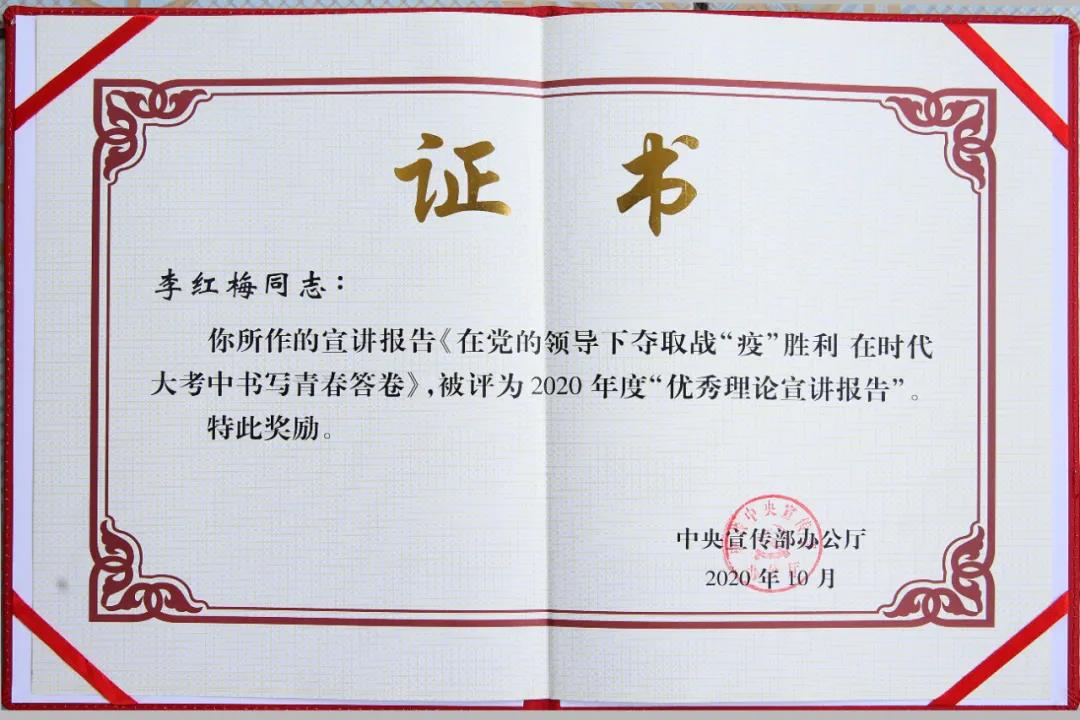 证 书
李红梅同志：
你所作的宣讲报告《在党的领导下夺取战“疫”胜利 在时代
大考中书写青春答卷》，被评为 2020 年度“优秀理论宣讲报告”。
特此奖励。
中央宣传部办公厅
2020 年 10 月